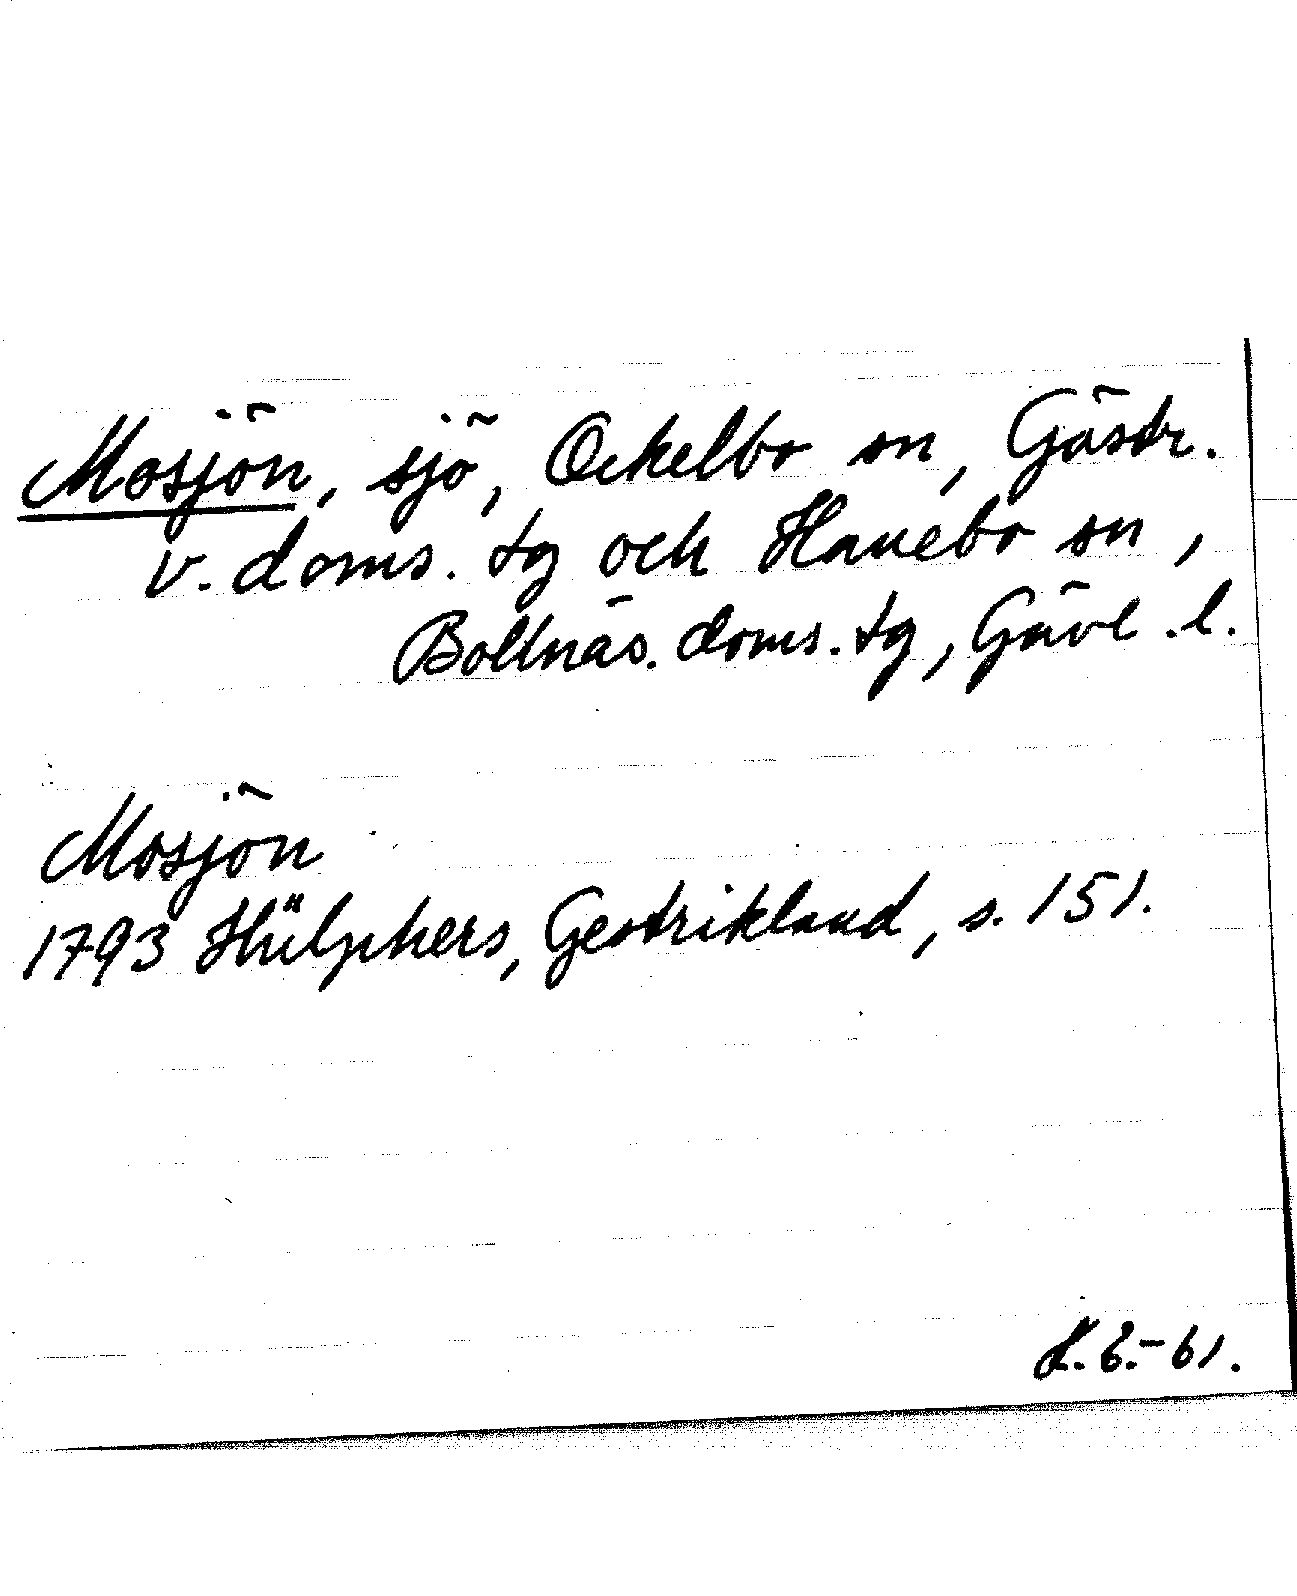 Mosjön, sjö, Ockelbo sn, Gästr.
v. doms. tg och Hanebo sn,
Bollnäs. doms. tg, Gävl. l.
Mosjön
1793 Hülphers, Gestrikland, s. 151.
61.